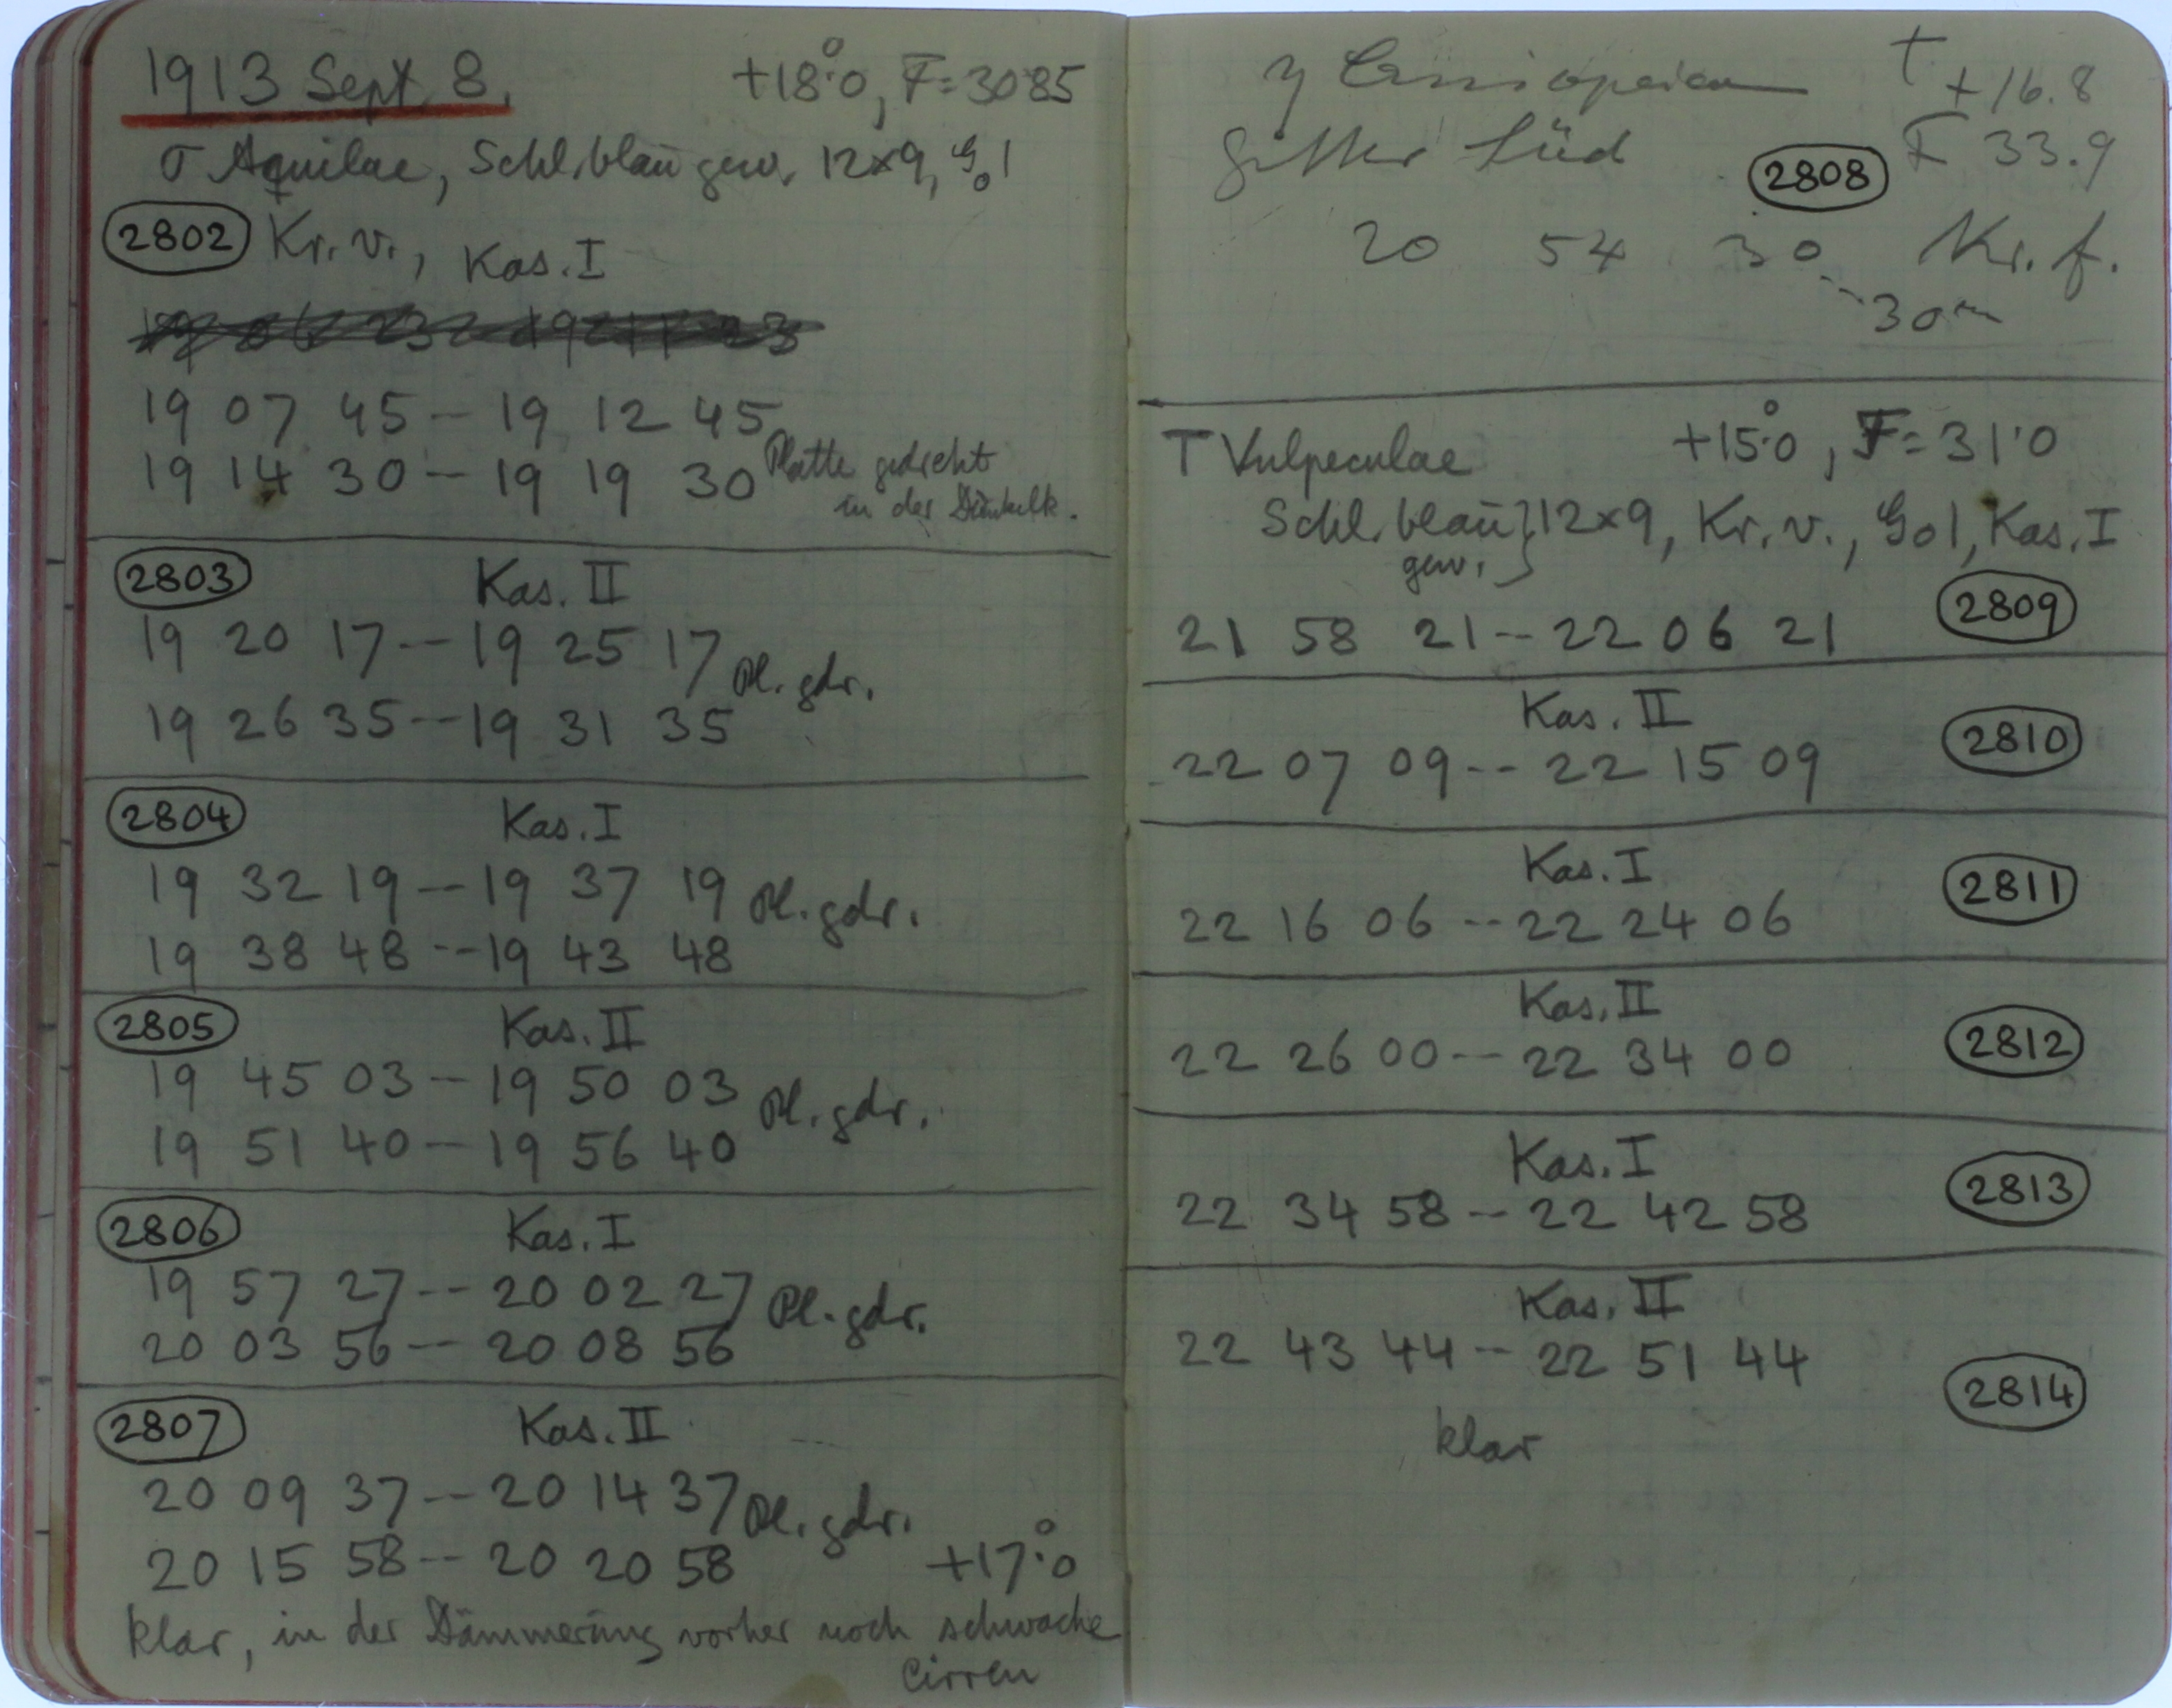 1913 Sept 8. +18°.0, F=30.85
σ Aquilae, Schl. blau gew. 12x9, G01
2802 Kr. v., Kas. I
19 07 45 – 19 12 45
19 14 30 – 19 19 30 Platte gedreht
in der Dunkelk.
2803 Kas. II
19 20 17 -- 19 25 17 Pl. gdr.
19 26 35 -- 19 31 35
2804 Kas. I
19 32 19 -- 19 37 19 Pl. gdr.
19 38 48 -- 19 43 48
2805 Kas. II
19 45 03 – 19 50 03 Pl. gdr.
19 51 40 – 19 56 40
2806 Kas. I
19 57 27 -- 20 02 27 Pl. gdr.
20 03 56 -- 20 08 56
2807 Kas. II
20 09 37 -- 20 14 37 Pl. gdr.
20 15 58 -- 20 20 58 +17°.0
klar, in der Dämmerung vorher noch schwache
Cirren
γ Cassiopeiae t +16.8
Gitter Süd 2808 F 33.9
20 54 30 Kr. f.
-- 30m
T Vulpeculae +15°.0, F=31.0
Schl. blau } 12x9, Kr. v., G01, Kas. I
gew.
21 58 21 -- 22 06 21 2809
Kas. II
22 07 09 -- 22 15 09 2810
Kas. I
22 16 06 -- 22 24 06 2811
Kas. II
22 26 00 -- 22 34 00 2812
Kas. I
22 34 58 -- 22 42 58 2813
Kas. II
22 43 44 -- 22 51 44 2814
klar